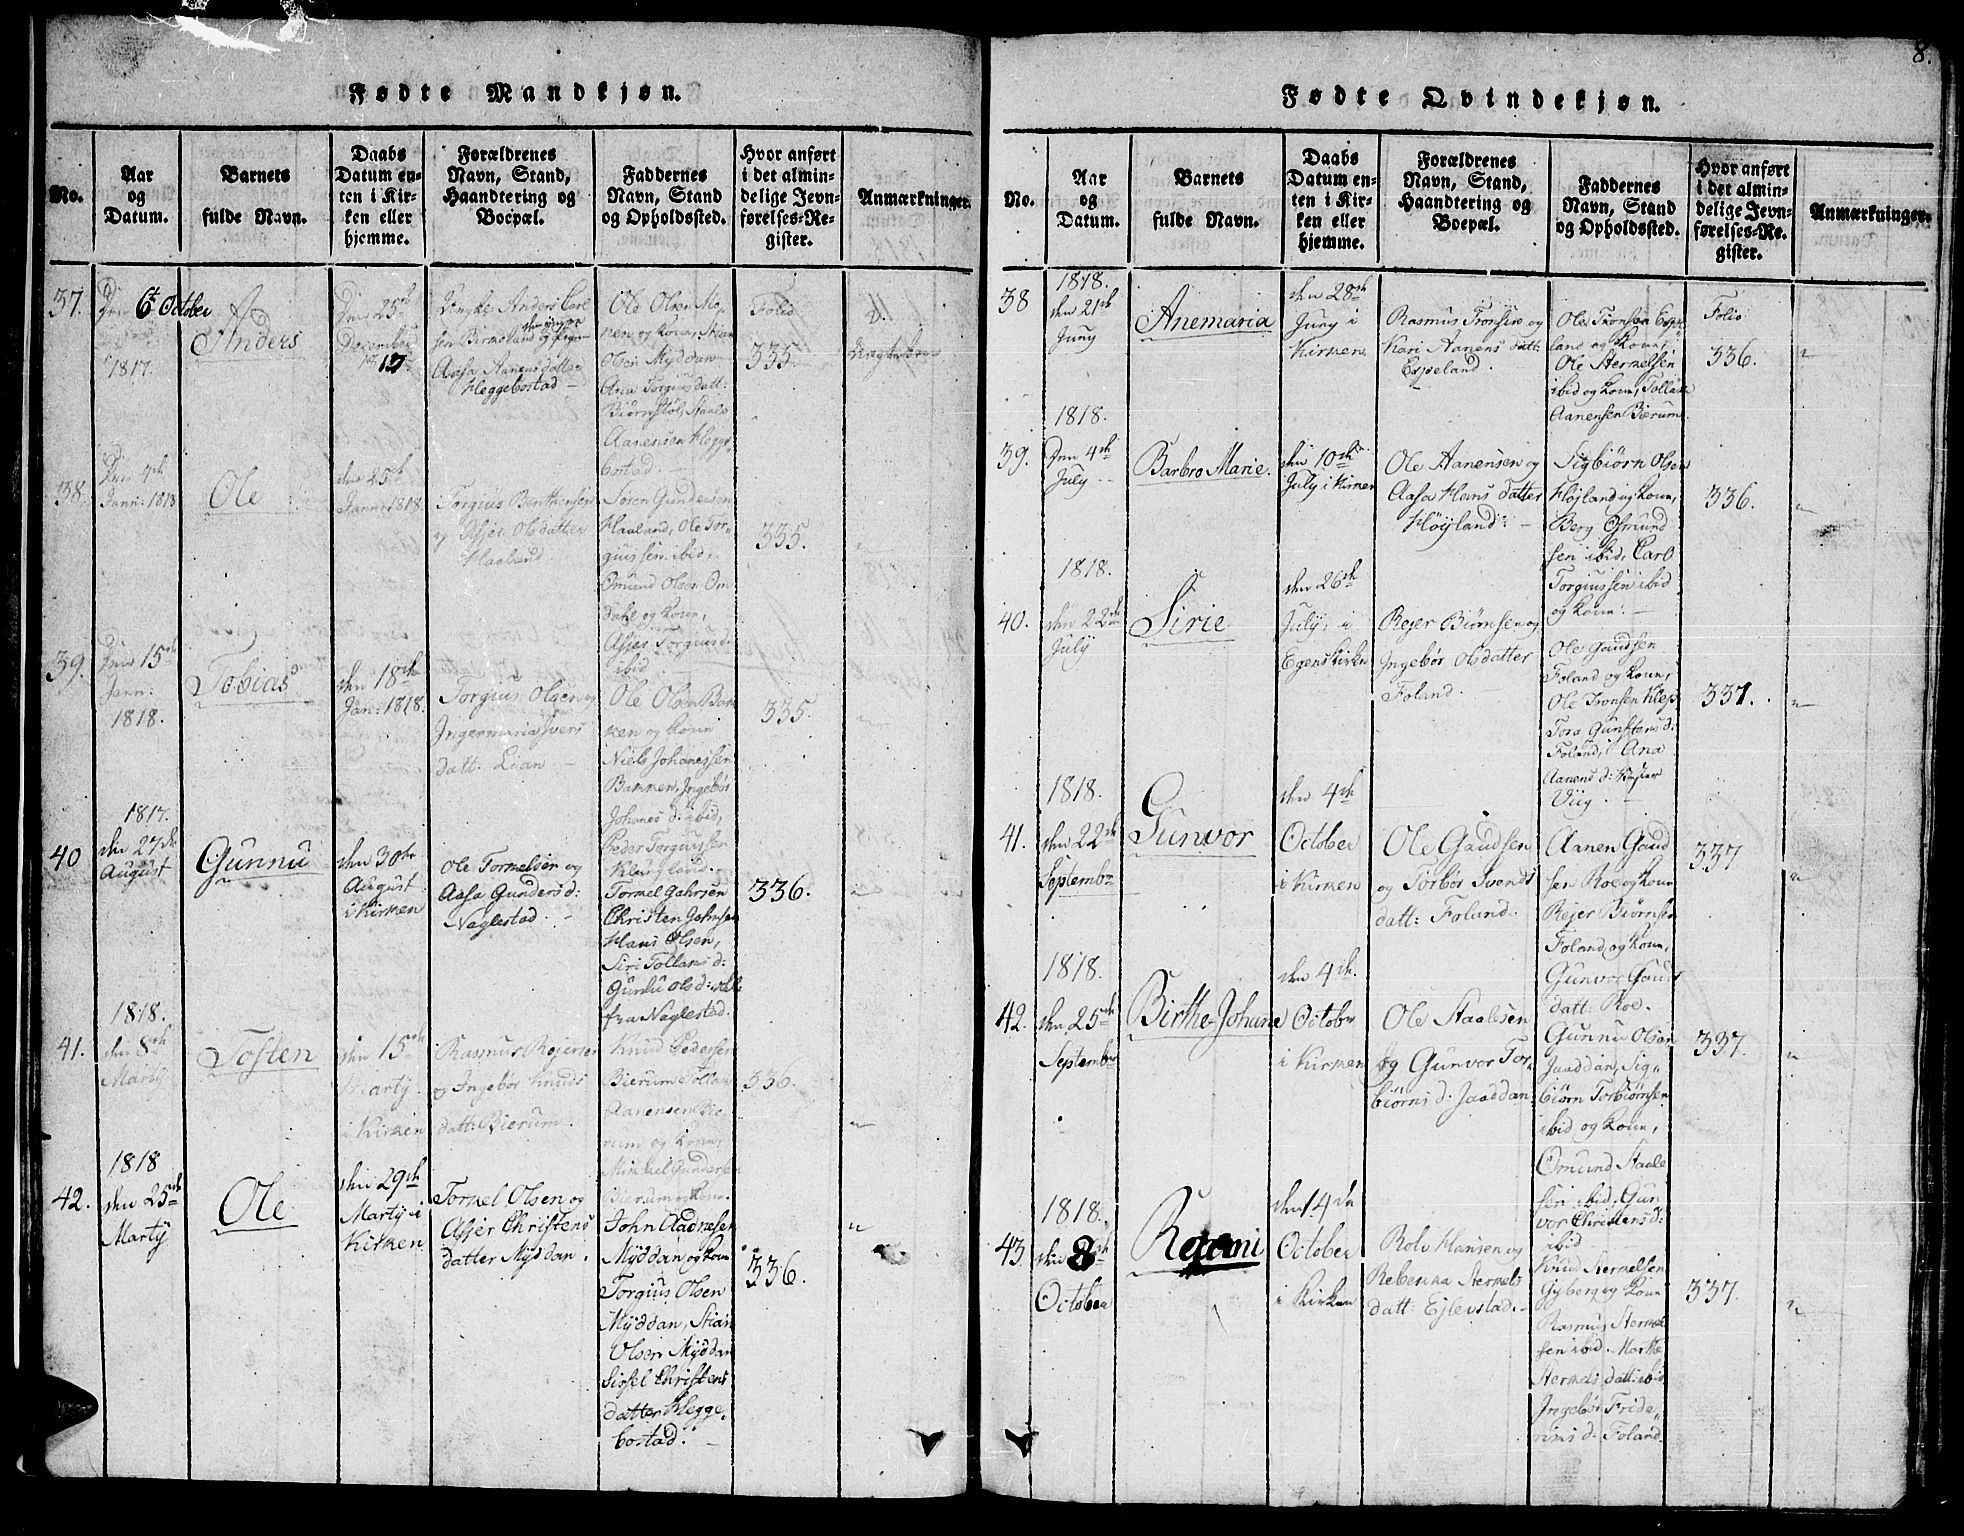 8.
Fødte Mandkjøn.
No.
Aar
og
Datum.
Barnets
fulde Navn.
Daabs
Datum en-
ten i Kir-
ken eller
hjemme.
Forældrenes
Navn, Stand,
Haandtering og
Boepæl.
Faddernes
Navn, Stand
og Opholdssted.
Hvor anført
i det almin-
delige Jevn-
førelses-Re-
gister.
Anmærkninger.
37.
6t October
1817.
Anders
Den 25de
December
1817
Aasa Aanens datter
Heggebostad
Ole Olsen
og kone, Stian
Olsen Myddan
Ana Torgius datt:
Biørnstøl, Staale
Aanensen Hegge
bostad.
Folio
335.
38.
Den 4de
Janri: 1818
Ole
den 25de
Janri 1818.
Torgius Benthsen
og Assei Olsdatter
Haaland
Søren Gundersen
Haaland, Ole Tor-
giussen ibid,
Omund Olsen Om
dahl og kone,
Asse Torgius d:
ibid
335.
39.
Den 15de
Jann:
1818.
Tobias
den 18de
Jan: 1818.
Torgius Olsen og
Ingermaria Ivers
datt: Lian
Ole Olsen
og kone
Niels Johanessen
Ingebor
Johanes d: ibid,
Peder Torgiussen
335.
40
1817.
den 27de
August
Gunnu
den 30te
August
i Kirken
Ole Tormelsen og
Aasa Gunders d:
Naglestad.
Tormel Gahrsen
Christen Johnsen
Hans Olsen,
Siri Tollans d:
Gunlu Ols d: alle
fra Naglestad.
336.
41.
1818.
den 8de
Martÿ
Tosten
den 15de
Martÿ
i Kirken
Rasmus Rejersen
og Ingebor Knuds
datt: Bierum.
Knud Pedersen
Bierum, Tollan
Aanensen Bie
rum og kone,
Mikkel Gundersen
Bierum og kone.
336.
42.
1818
den 25de
Martÿ
Ole
den 29de
Martÿ i
Kirken
Tormel Olsen og
Asser Christens
datter Myddan.
John Aadnesen
Myddan og kone
Torgius Olsen
Myddan, Stian
Olsen Myddan
Sissel Christens
datter Hegge-
bostad.
336.
Fødte Qvindekjøn.
No.
Aar
og
Datum.
Barnets
fulde Navn.
Daabs
Datum en-
ten i Kir-
ken eller
hjemme.
Forældrenes
Navn, Stand,
Haandtering og
Boepæl.
Faddernes
Navn, Stand
og Opholdssted.
Hvor anført
i det almin-
delige Jevn-
førelses-Re-
gister.
Anmærkninger.
38
1818.
den 21de
Juny
Anemaria
den 28de
Juny i
Kirken
Rasmus Tronsen og
Kari Aanens datt:
Espeland.
Ole Tronsen Espe
land og kone,
Ole Stermelsen
ibid og kone, Tollak
Aanensen Bierum
Folio
336.
39.
1818.
Den 4de
July
Barbro Marie.
den 10de
July i Kirken
Ole Aanensen og
Aasa Hans datter
Høÿland
Sigbiørn Olsen
Højland og kone,
Berg Osmund
sen ibid, Carl
Torgiussen ibid
og kone.
336.
40.
1818.
den 22de
July
Sirie
den 26de
July i
Egens kirke
Rejer Biørnsen og
Ingebor Olsdatter
Foland.
Ole Gaudsen
Foland og kone,
Ole Tronsen Klep
Tora Gunstens d:
Foland, Ana
Aanens d:
Viig.
337.
41.
1818.
den 22de
Septembr
Gunvor
den 4de
October
i Kirken
Ole Gaudsen
og Torbor Svends
datt: Foland.
Aanen Gaud
sen Roe og kone
Rejer Biørnsen
Foland og kone,
Gunvor Gauds
datt: Roe.
337
42.
1818.
den 25de
September
Birthe Johane
den 4de
October
i Kirken
Ole Staalesen
og Gunvor Tor-
biørns d: Jaaddan
Gunnu Olsen
Jaaddan, Sig-
biørn Torbiørnsen
ibid og kone,
Omund Staale
sen ibid, Gun
vor Christens d:
ibid
337.
43.
1818.
den 8de
October
den 14de
October
i Kirken
Rolv Hansen og
Rebekka Stermels
datt: Ejlevstad.
Knud Stermelsen
Gyberg og kone
Rasmus Stermel
sen ibid. Marthe
Stermels datt: ibid
Ingebor Fride-
riks d: Foland
337.